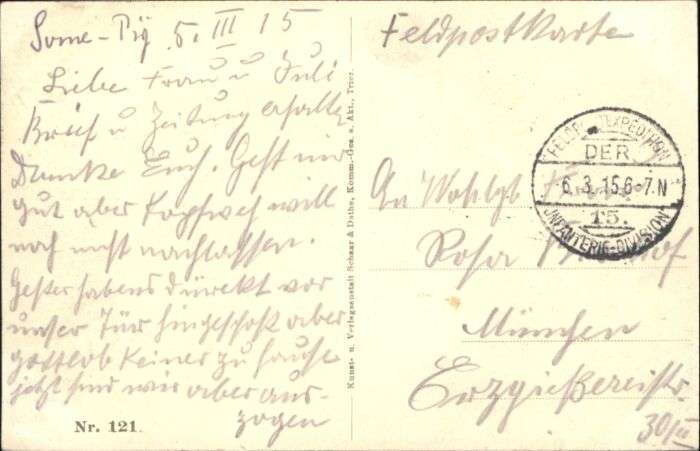 Some-Py 5. III 15
Liebe Frau u Juli
Brief u Zeitung erhalten
Danke Euch. Geht mir
gut aber Kopfweh will
noch nicht nachlassen.
Gestern habens direkt vor
unser Tür hingeschoß aber
gottlob keiner zu hause
jetzt sind wir aber aus-
zogen
Nr. 121.
Kunst- u. Verlagsanstalt Schaar & Dathe, Komm.-Ges. a. Akt., Trier.
Feldpostkarte
FELDPOSTEXPEDITION
DER
6.3.15.6-7.N
15.
INFANTERIE-DIVISION
An Wohlgb Frau
Rosa
München
Erzgießereistr.
30/II